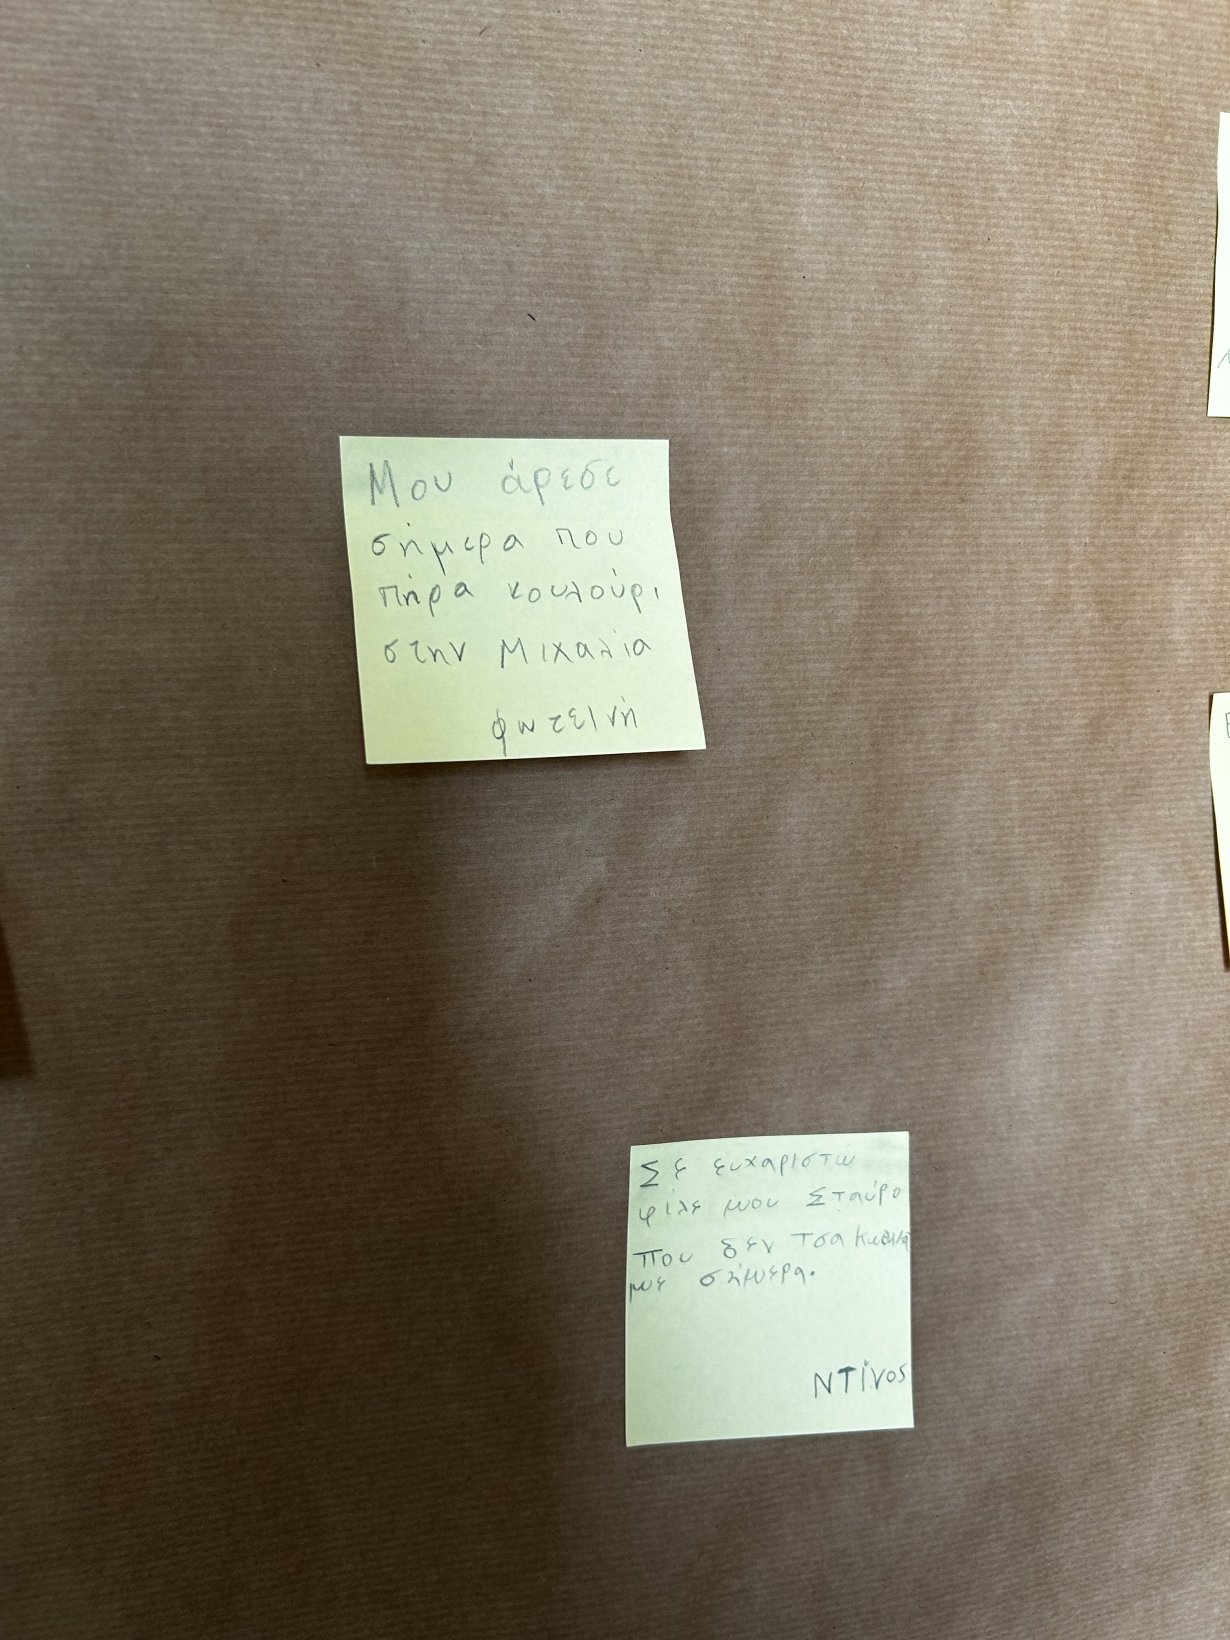 Μου άρεσε
σήμερα που
πήρα κουλούρι
στην Μιχαλία
φωτεινή
Σε ευχαριστω
φίλε μου Σταύρο
που δεν
με σήμερα.
ΝΤίνος